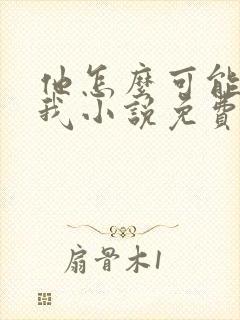 他怎麼可能
我小說免費
扇骨木1